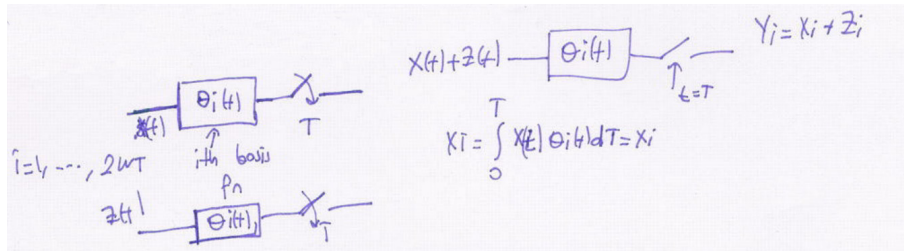 θi(t)
X(t)
T
i=1, ..., 2WT
ith basis
fn
Z(t)
θi(t)
T
X(t)+Z(t)
θi(t)
Yi=Xi+Zi
t=T
Xi=∫0T X(t) θi(t)dT=Xi